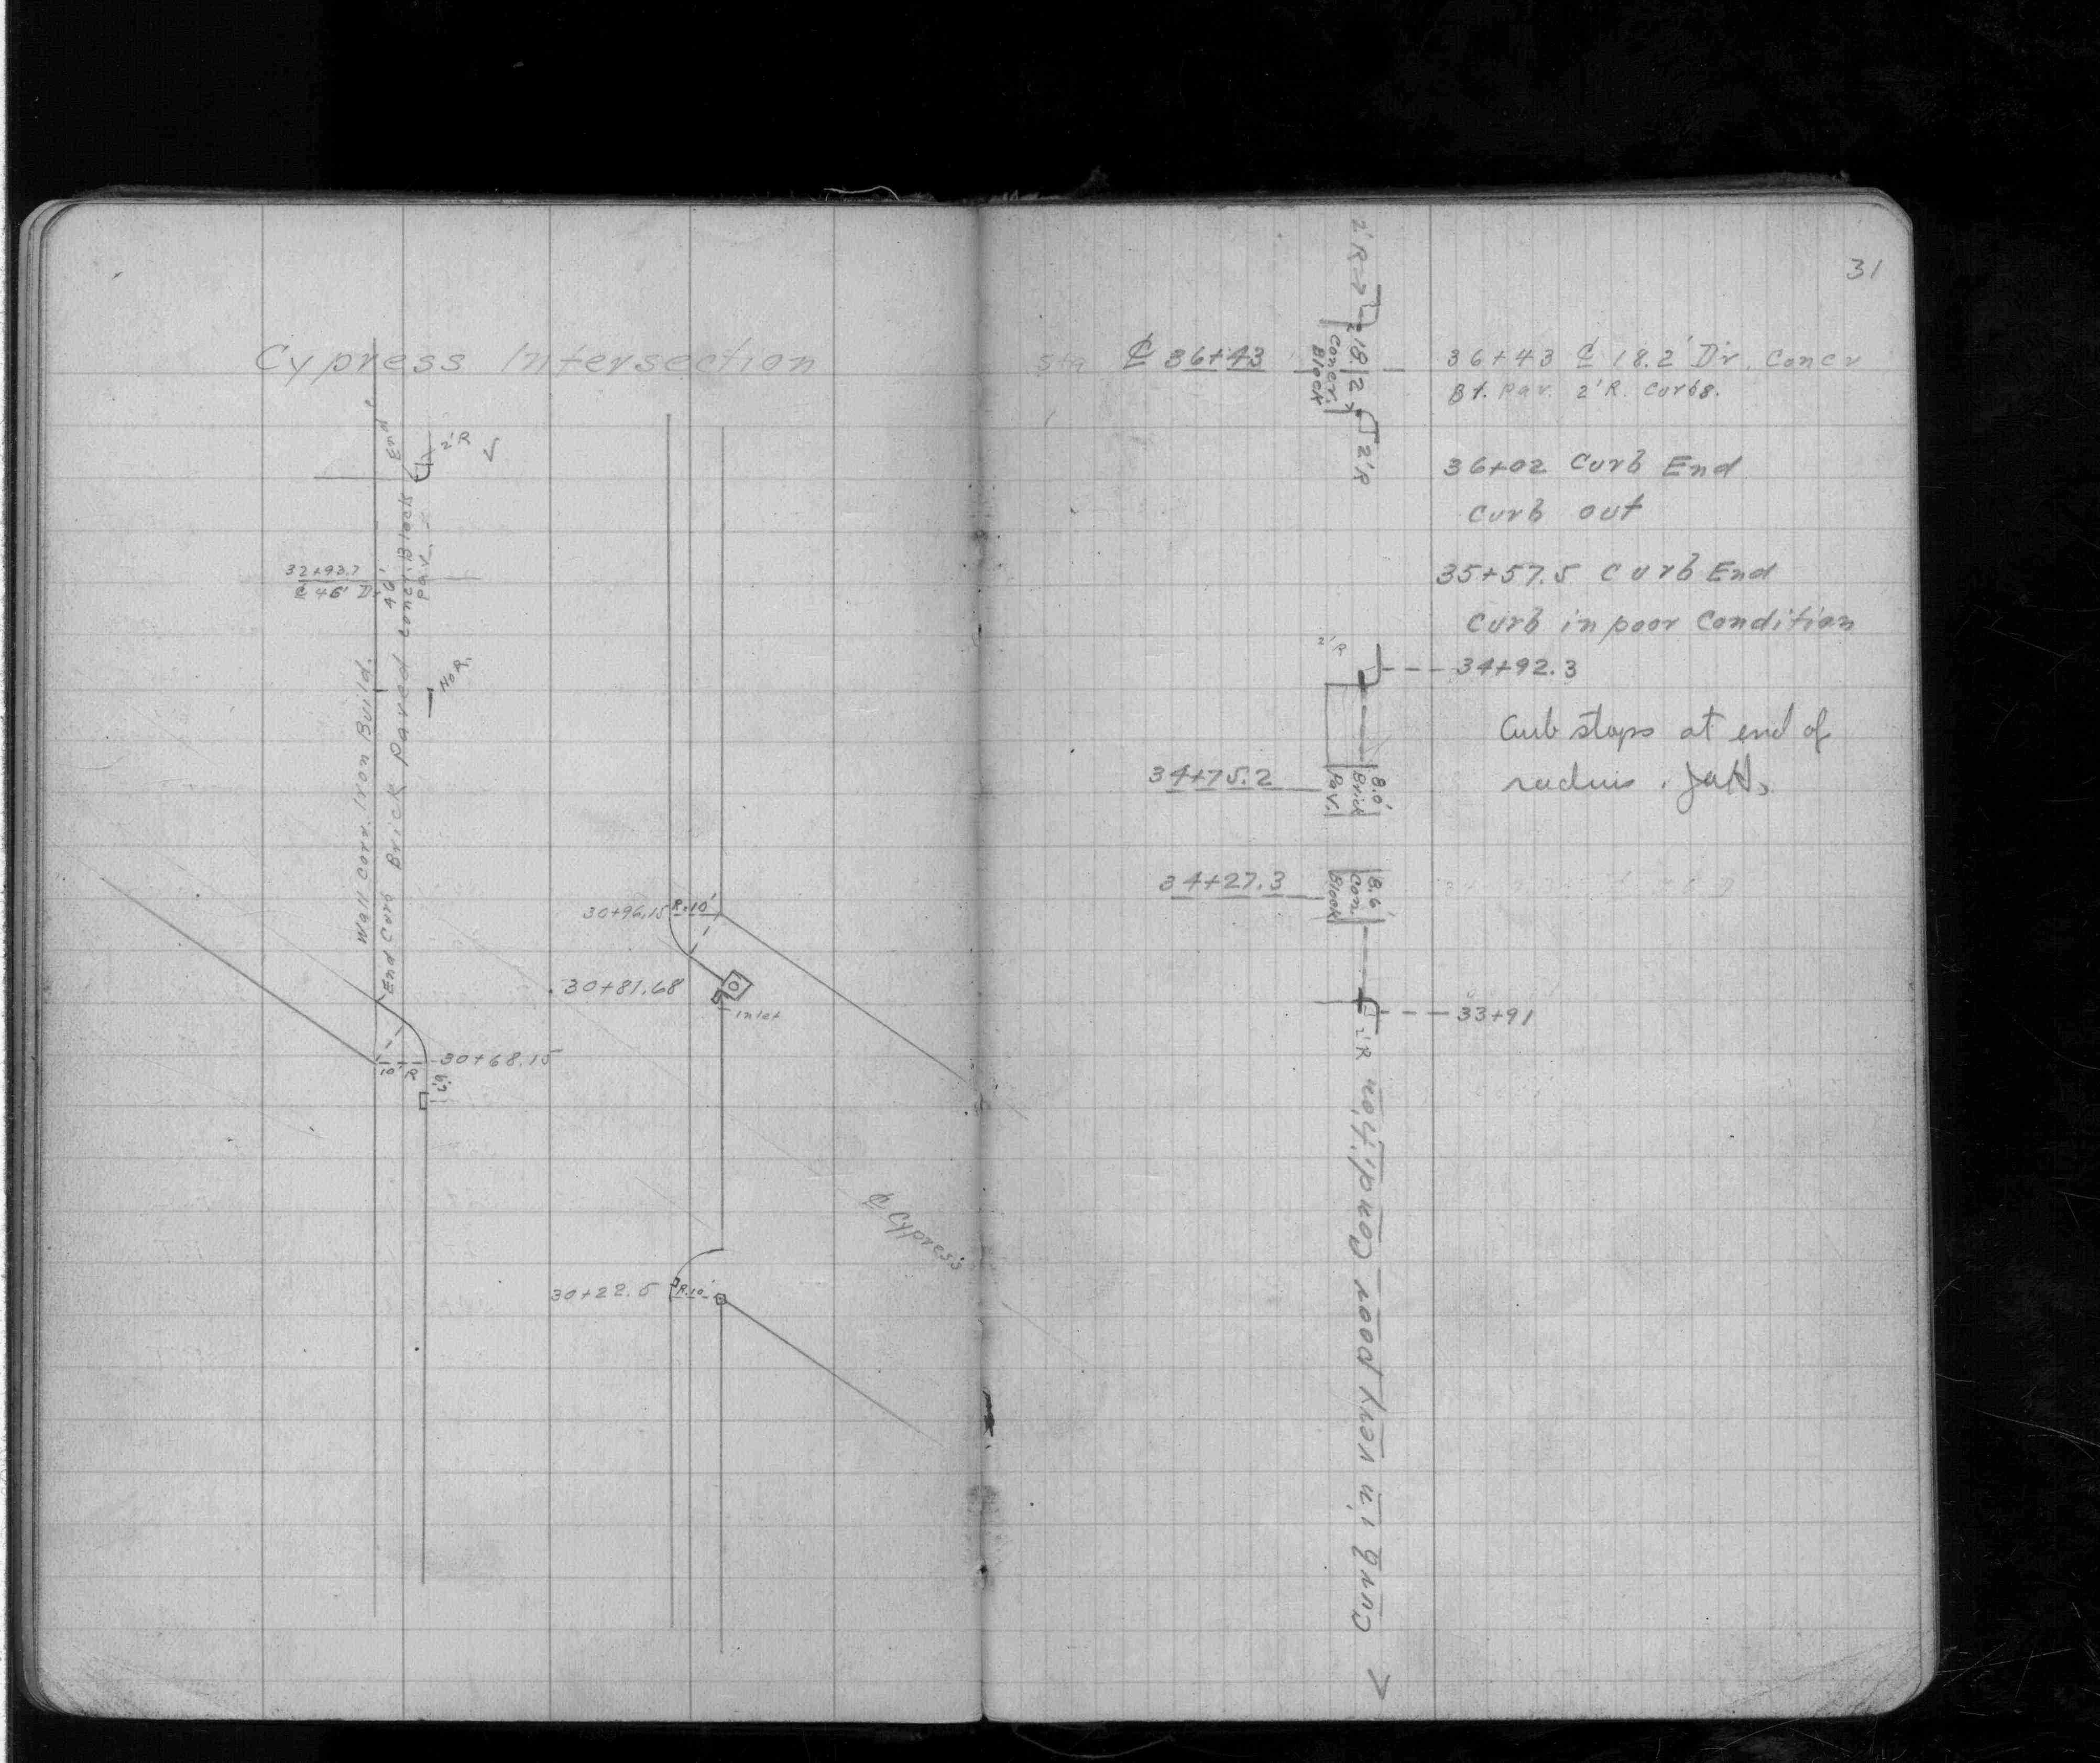 Cypress Intersection
End
2'R
32+93.7
₵ 46' Dr.
46'
Brick Paved concr. Block
Pav.
No R.
Wall Corr. Iron Build.
End Curb
30+96.15 R-10'
30+81.68
inlet
10' R
30+68.15
₵ Cypress
30+22.5 R-10'
31
2'R
Sta ₵ 36+43
18.2
Concr.
Block
2'R
36+43 ₵ 18.2' Dr. Concr
Bl. Pav. 2'R. Curbs.
36+02 Curb End
Curb out
35+57.5 Curb End
Curb in poor Condition
2'R
34+92.3
Curb stops at end of
radius.
34+75.2
8.0'
Brick
Pav.
34+27.3
8.6'
Con.
Block
33+91
2'R
Curb in very poor Condition